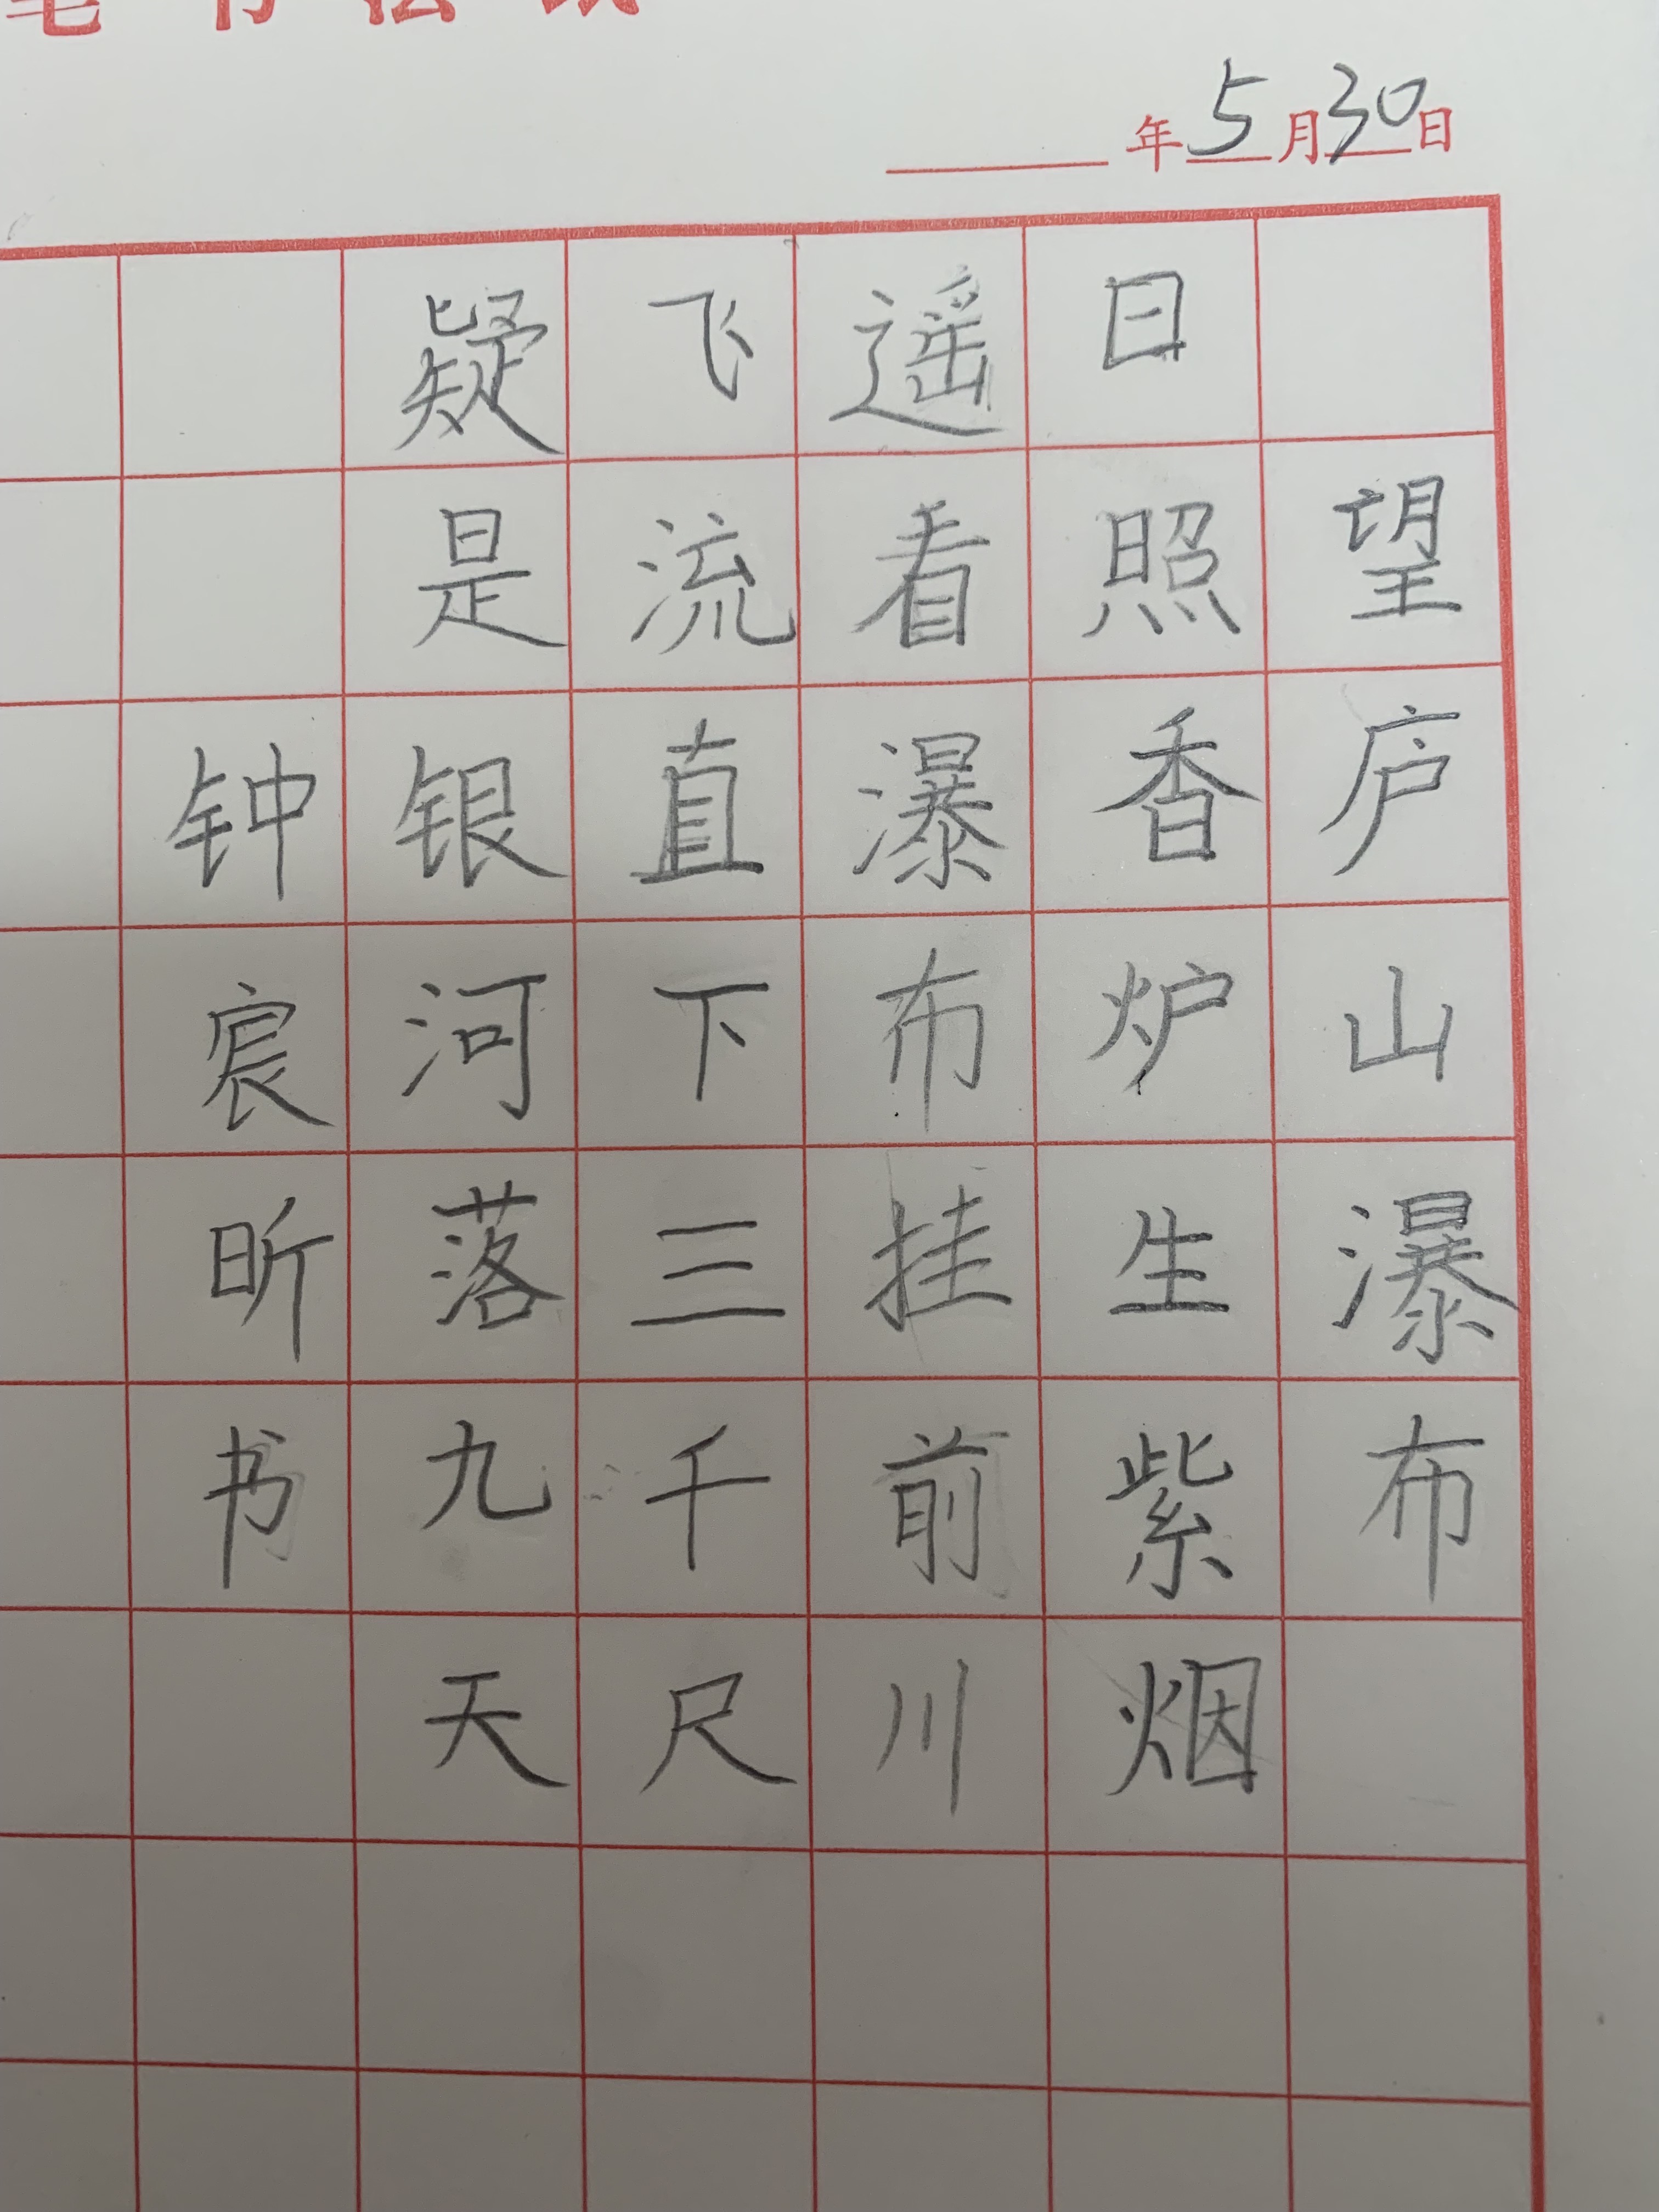 年5月30日
望庐山瀑布
日照香炉生紫烟
遥看瀑布挂前川
飞流直下三千尺
疑是银河落九天
钟宸昕书